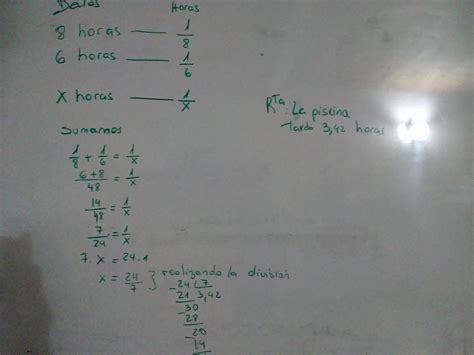 Datos Horas
8 horas —— 1/8
6 horas —— 1/6
X horas —— 1/x
Rta: La piscina
tarda 3,42 horas
Sumamos
1/8 + 1/6 = 1/x
6+8/48 = 1/x
14/48 = 1/x
7/24 = 1/x
7. x = 24.1
x = 24/7 } realizando la división
-24 | 7
21 3,42
-30
28
-20
14